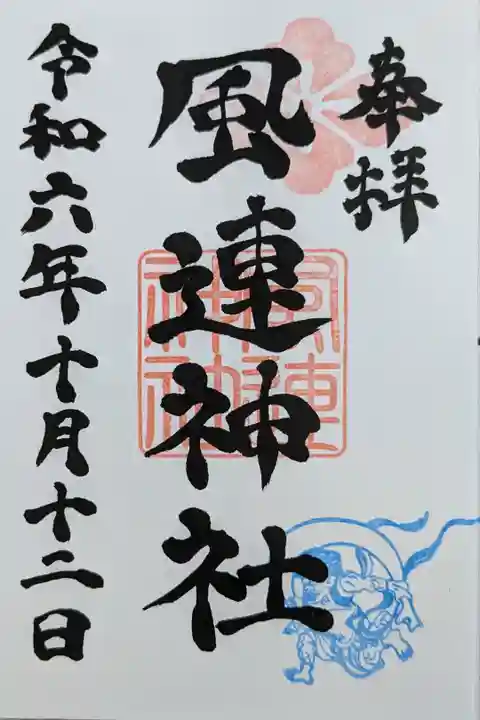 奉拝
風連神社
風連神社
令和六年十月十二日